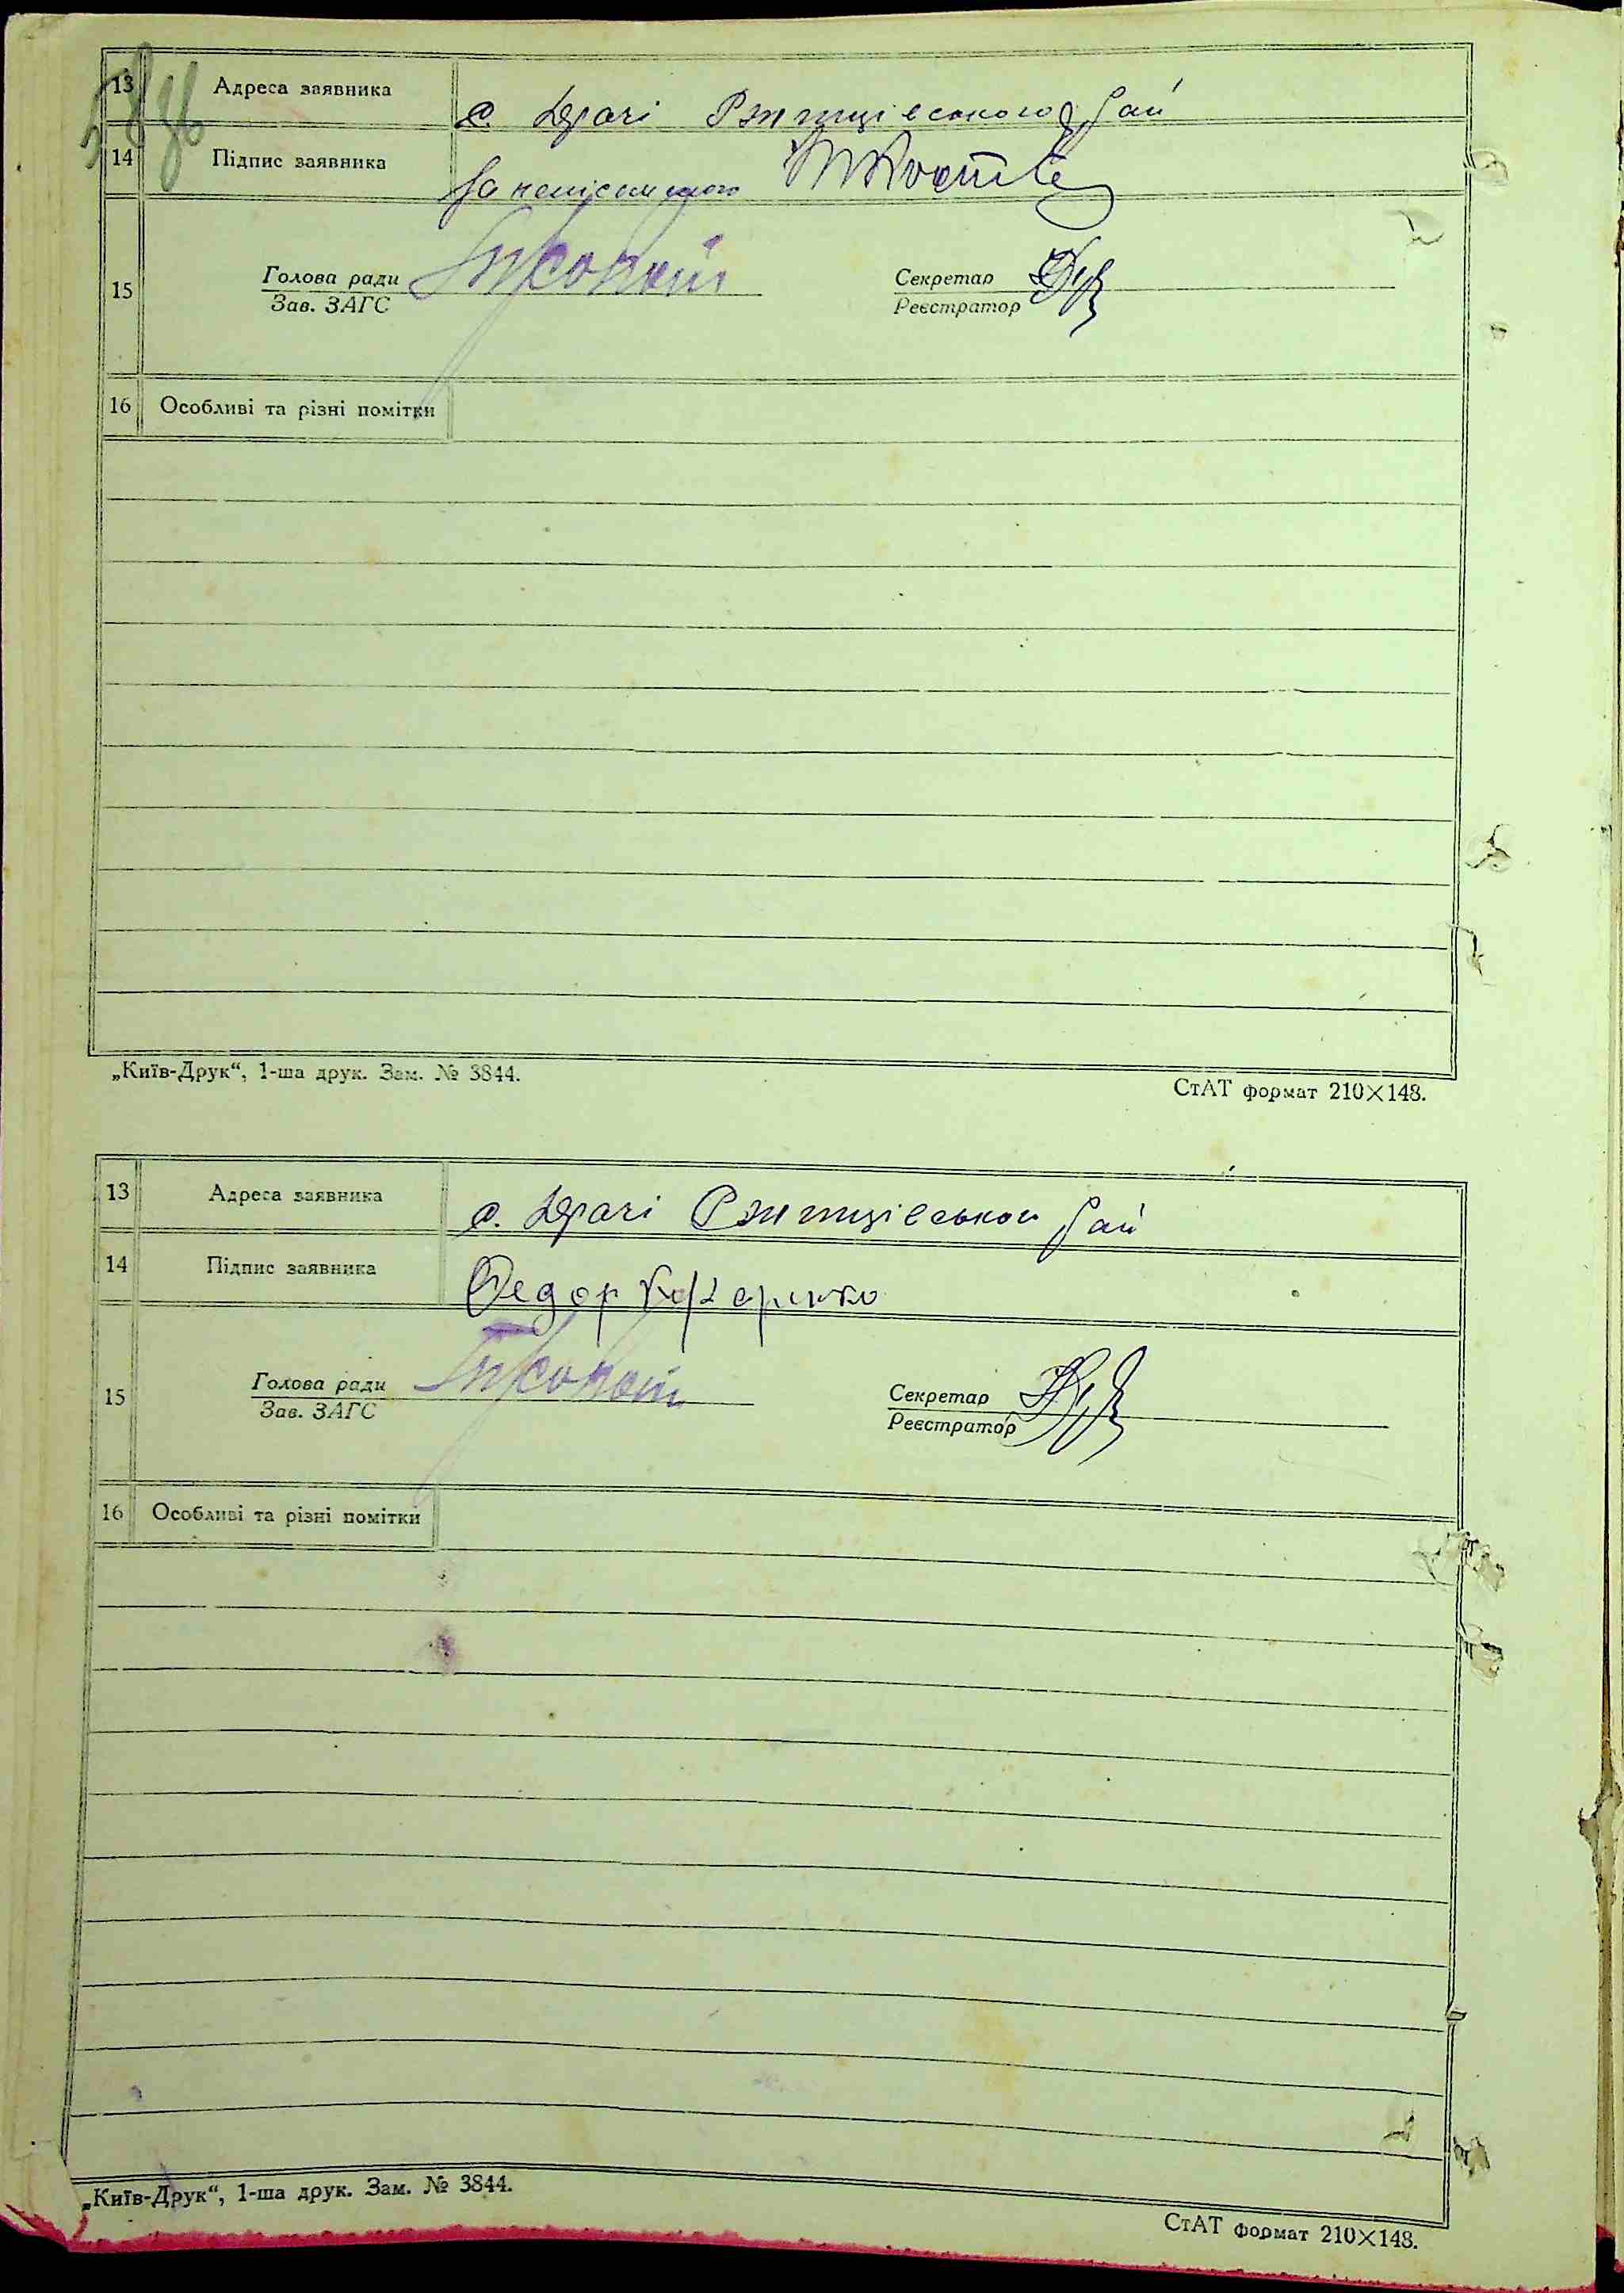 13 Адреса заявника с. Дерачі Ржищівського рай
14 Підпис заявника За неписьменого
15 Голова ради Секретар
Зав. ЗАГС Реєстратор
16 Особливі та різні помітки
„Київ-Друк“, 1-ша друк. Зам. № 3844.
СтАТ формат 210×148.
13 Адреса заявника с. Дерачі Ржищівськои рай
14 Підпис заявника Федор
15 Голова ради Секретар
Зав. ЗАГС Реєстратор
16 Особливі та різні помітки
„Київ-Друк“, 1-ша друк. Зам. № 3844.
СтАТ формат 210×148.